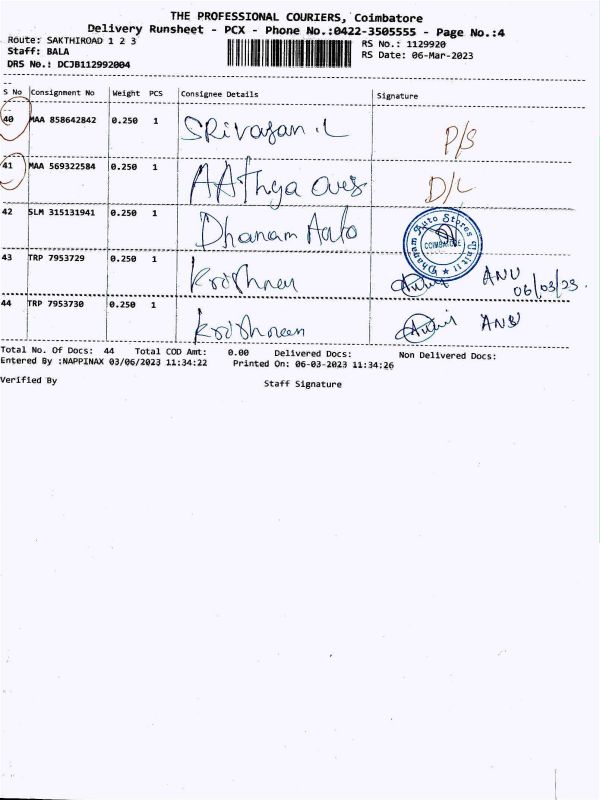 THE PROFESSIONAL COURIERS, Coimbatore
Delivery Runsheet - PCX - Phone No.:0422-3505555 - Page No.:4
Route: SAKTHIROAD 1 2 3 RS No.: 1129920
Staff: BALA RS Date: 06-Mar-2023
DRS No.: DCJB112992004
S No Consignment No Weight PCS Consignee Details Signature
40 MAA 858642842 0.250 1 SRivasan.L P/S
41 MAA 569322584 0.250 1 AAthya D/L
42 SLM 315131941 0.250 1 Dhanam Auto
Dhanam Auto Stores Unit II
COIMBATORE
43 TRP 7953729 0.250 1 ANU
06/03/23.
44 TRP 7953730 0.250 1 ANU
Total No. Of Docs: 44 Total COD Amt: 0.00 Delivered Docs: Non Delivered Docs:
Entered By :NAPPINAX 03/06/2023 11:34:22 Printed On: 06-03-2023 11:34:26
Verified By Staff Signature